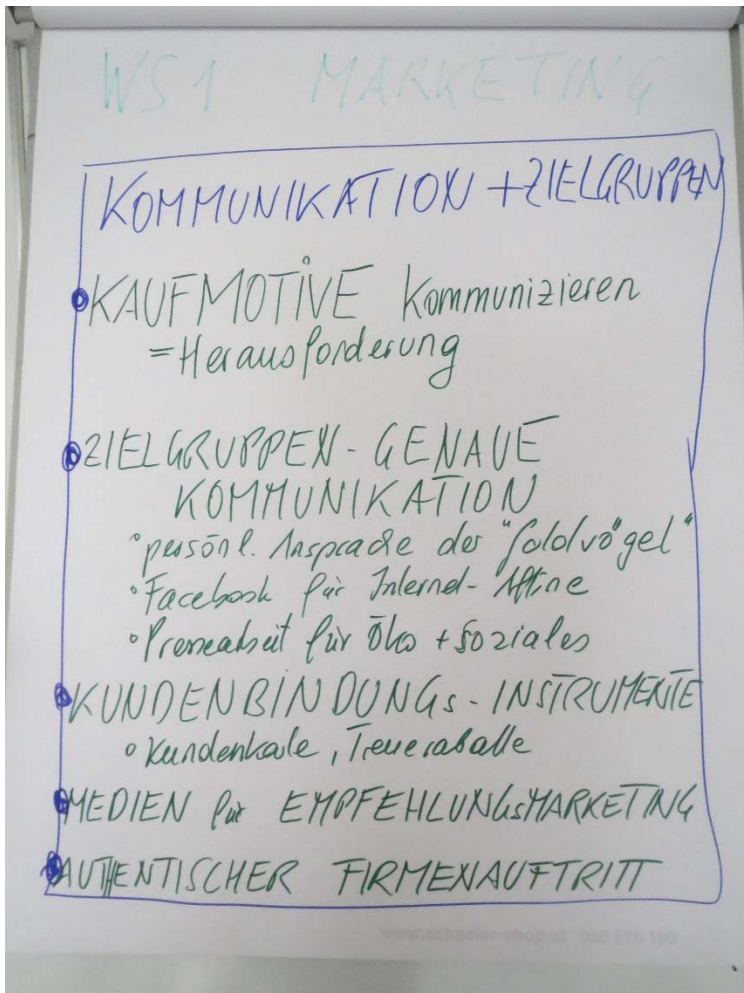 WS1 MARKETING
KOMMUNIKATION + ZIELGRUPPEN
KAUFMOTIVE kommunizieren
= Herausforderung
ZIELGRUPPEN - GENAUE
KOMMUNIKATION
persönl. Ansprache der "Goldvögel"
Facebook für Internet-Affine
Pressearbeit für Öko + Soziales
KUNDENBINDUNGs-INSTRUMENTE
Kundenkarte, Treuerabatte
MEDIEN für EMPFEHLUNGsMARKETING
AUTHENTISCHER FIRMENAUFTRITT